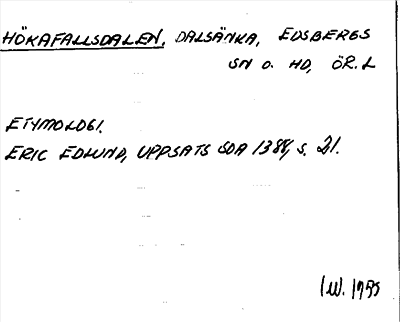 HÖKAFALLSDALEN, DALSÄNKA, EDSBERGS
SN O. HD, ÖR.L
ETYMOLOGI.
ERIC EDLUND, UPPSATS SOA 1388, S. 21.
I.W. 1975